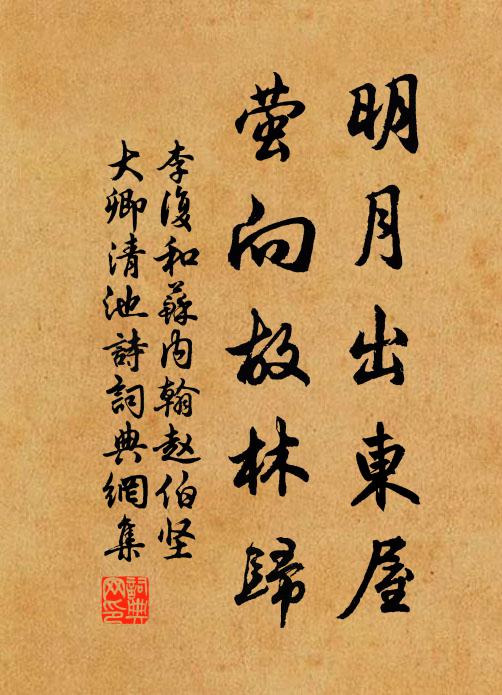 明月出東屋
萤向故林歸
李復和蘇内翰赵伯坚
大卿清池詩詞典網集
詞典网印